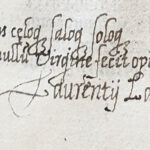 celog salog solog
nullū Virgine fecit opi
Laurentij La